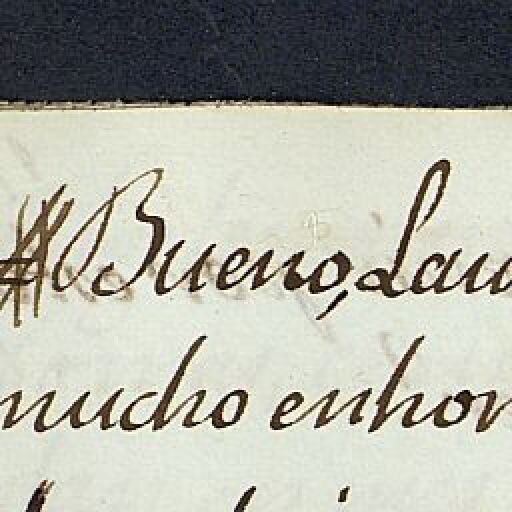 Bueno, Lau
mucho enhor